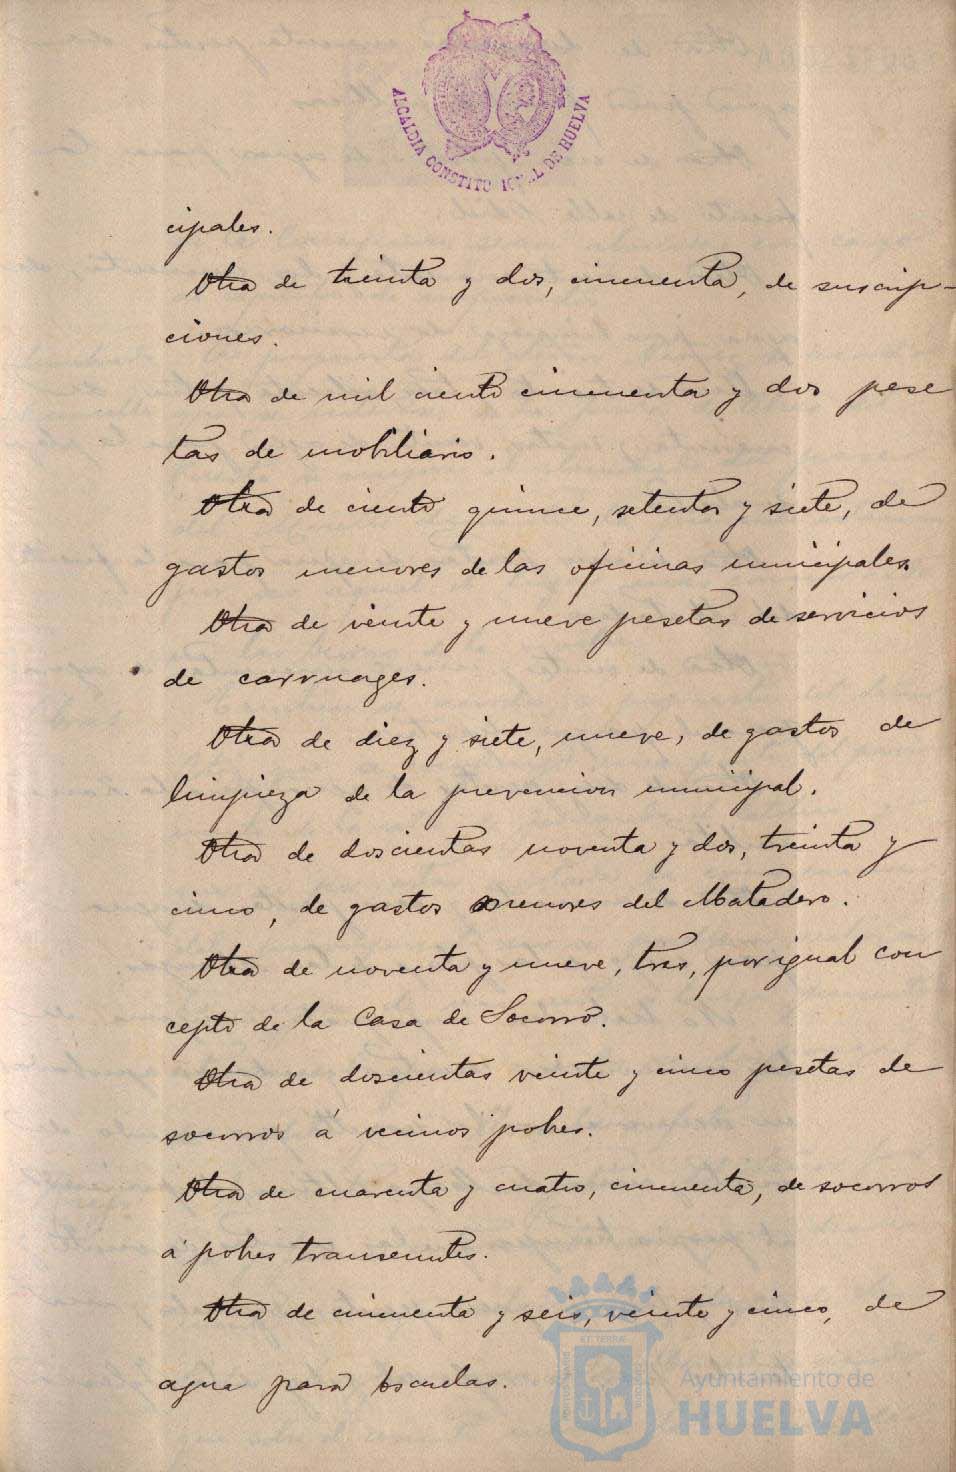 ALCALDIA CONSTITUCIONAL DE HUELVA
cipales.
Otra de treinta y dos, cincuenta, de suscrip-
ciones.
Otra de mil ciento cincuenta y dos pese
tas de mobiliario.
Otra de ciento quince, setenta y siete, de
gastos menores de las oficinas municipales.
Otra de veinte y nueve pesetas de servicios
de carruages.
Otra de diez y siete, nueve, de gastos de
limpieza de la prevencion municipal.
Otra de doscientas noventa y dos, treinta y
cinco, de gastos menores del Matadero.
Otra de noventa y nueve, tres, por igual con
cepto de la Casa de Socorro.
Otra de doscientas veinte y cinco pesetas de
socorros á vecinos pobres.
Otra de cuarenta y cuatro, cincuenta, de socorros
á pobres transeuntes.
Otra de cincuenta y seis, veinte y cinco, de
agua para escuelas.
Ayuntamiento de
HUELVA